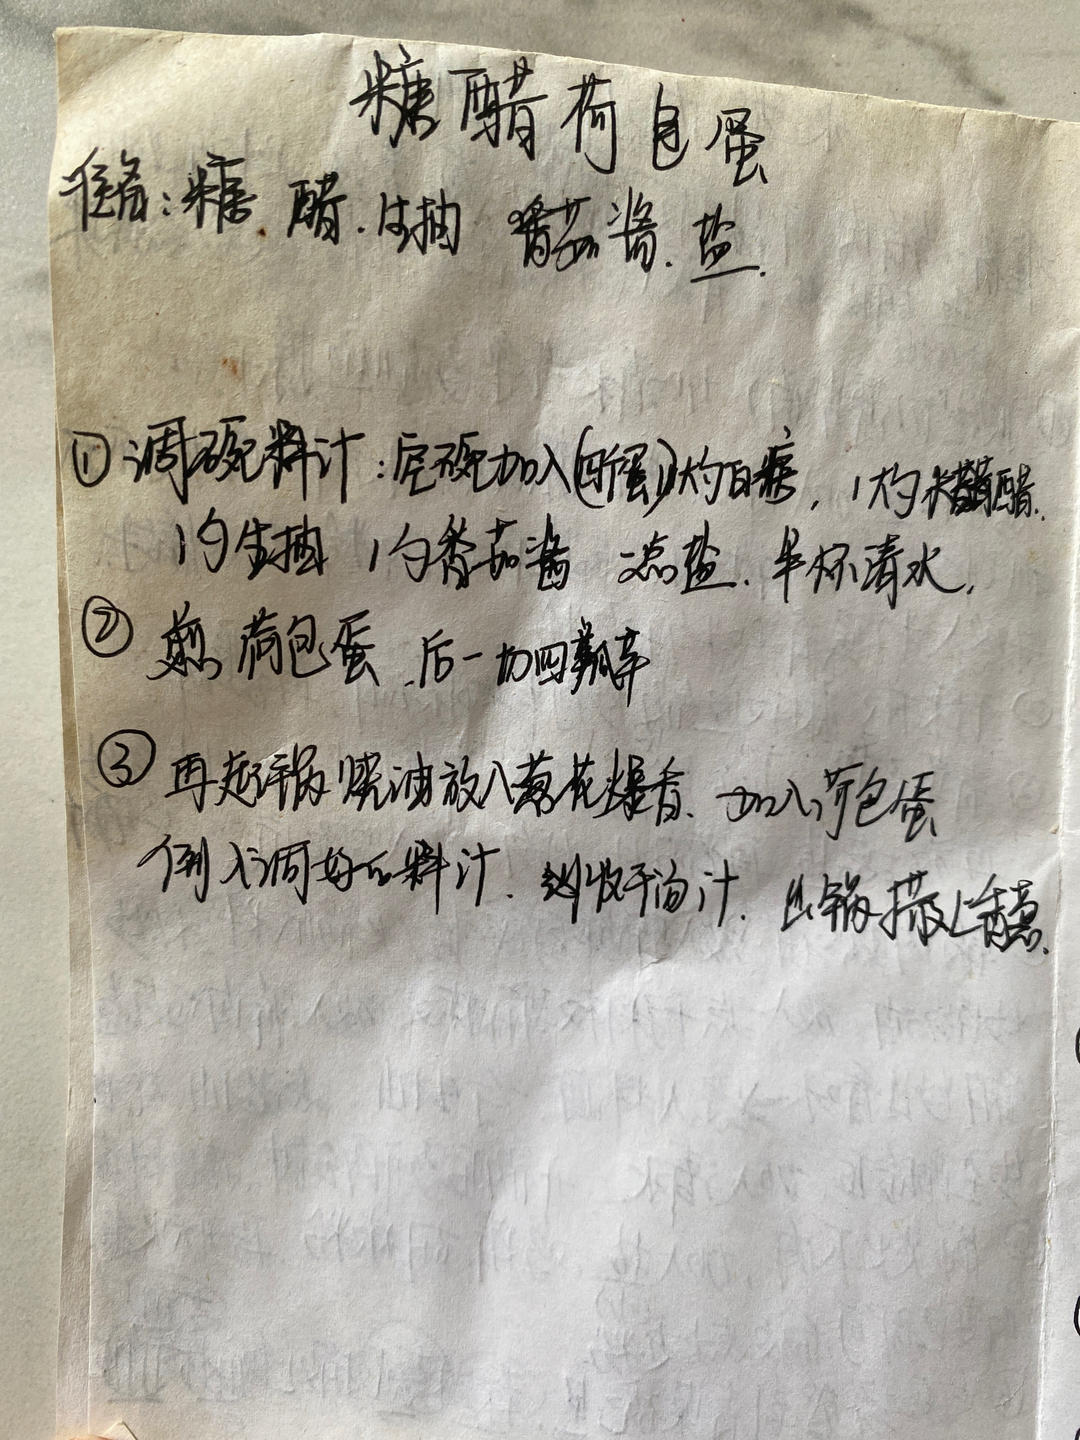 糖醋荷包蛋
准备:糖.醋.生抽 番茄酱.盐.
①调碗料汁:空碗加入(四个蛋)1灼白糖,1灼米醋.
1勺生抽 1勺番茄酱 一点盐.半杯清水,
②煎荷包蛋.后一切四瓣
③再起锅烧油放入葱花爆香.加入荷包蛋
倒入调好的料汁.收干汤汁.出锅撒上香葱.